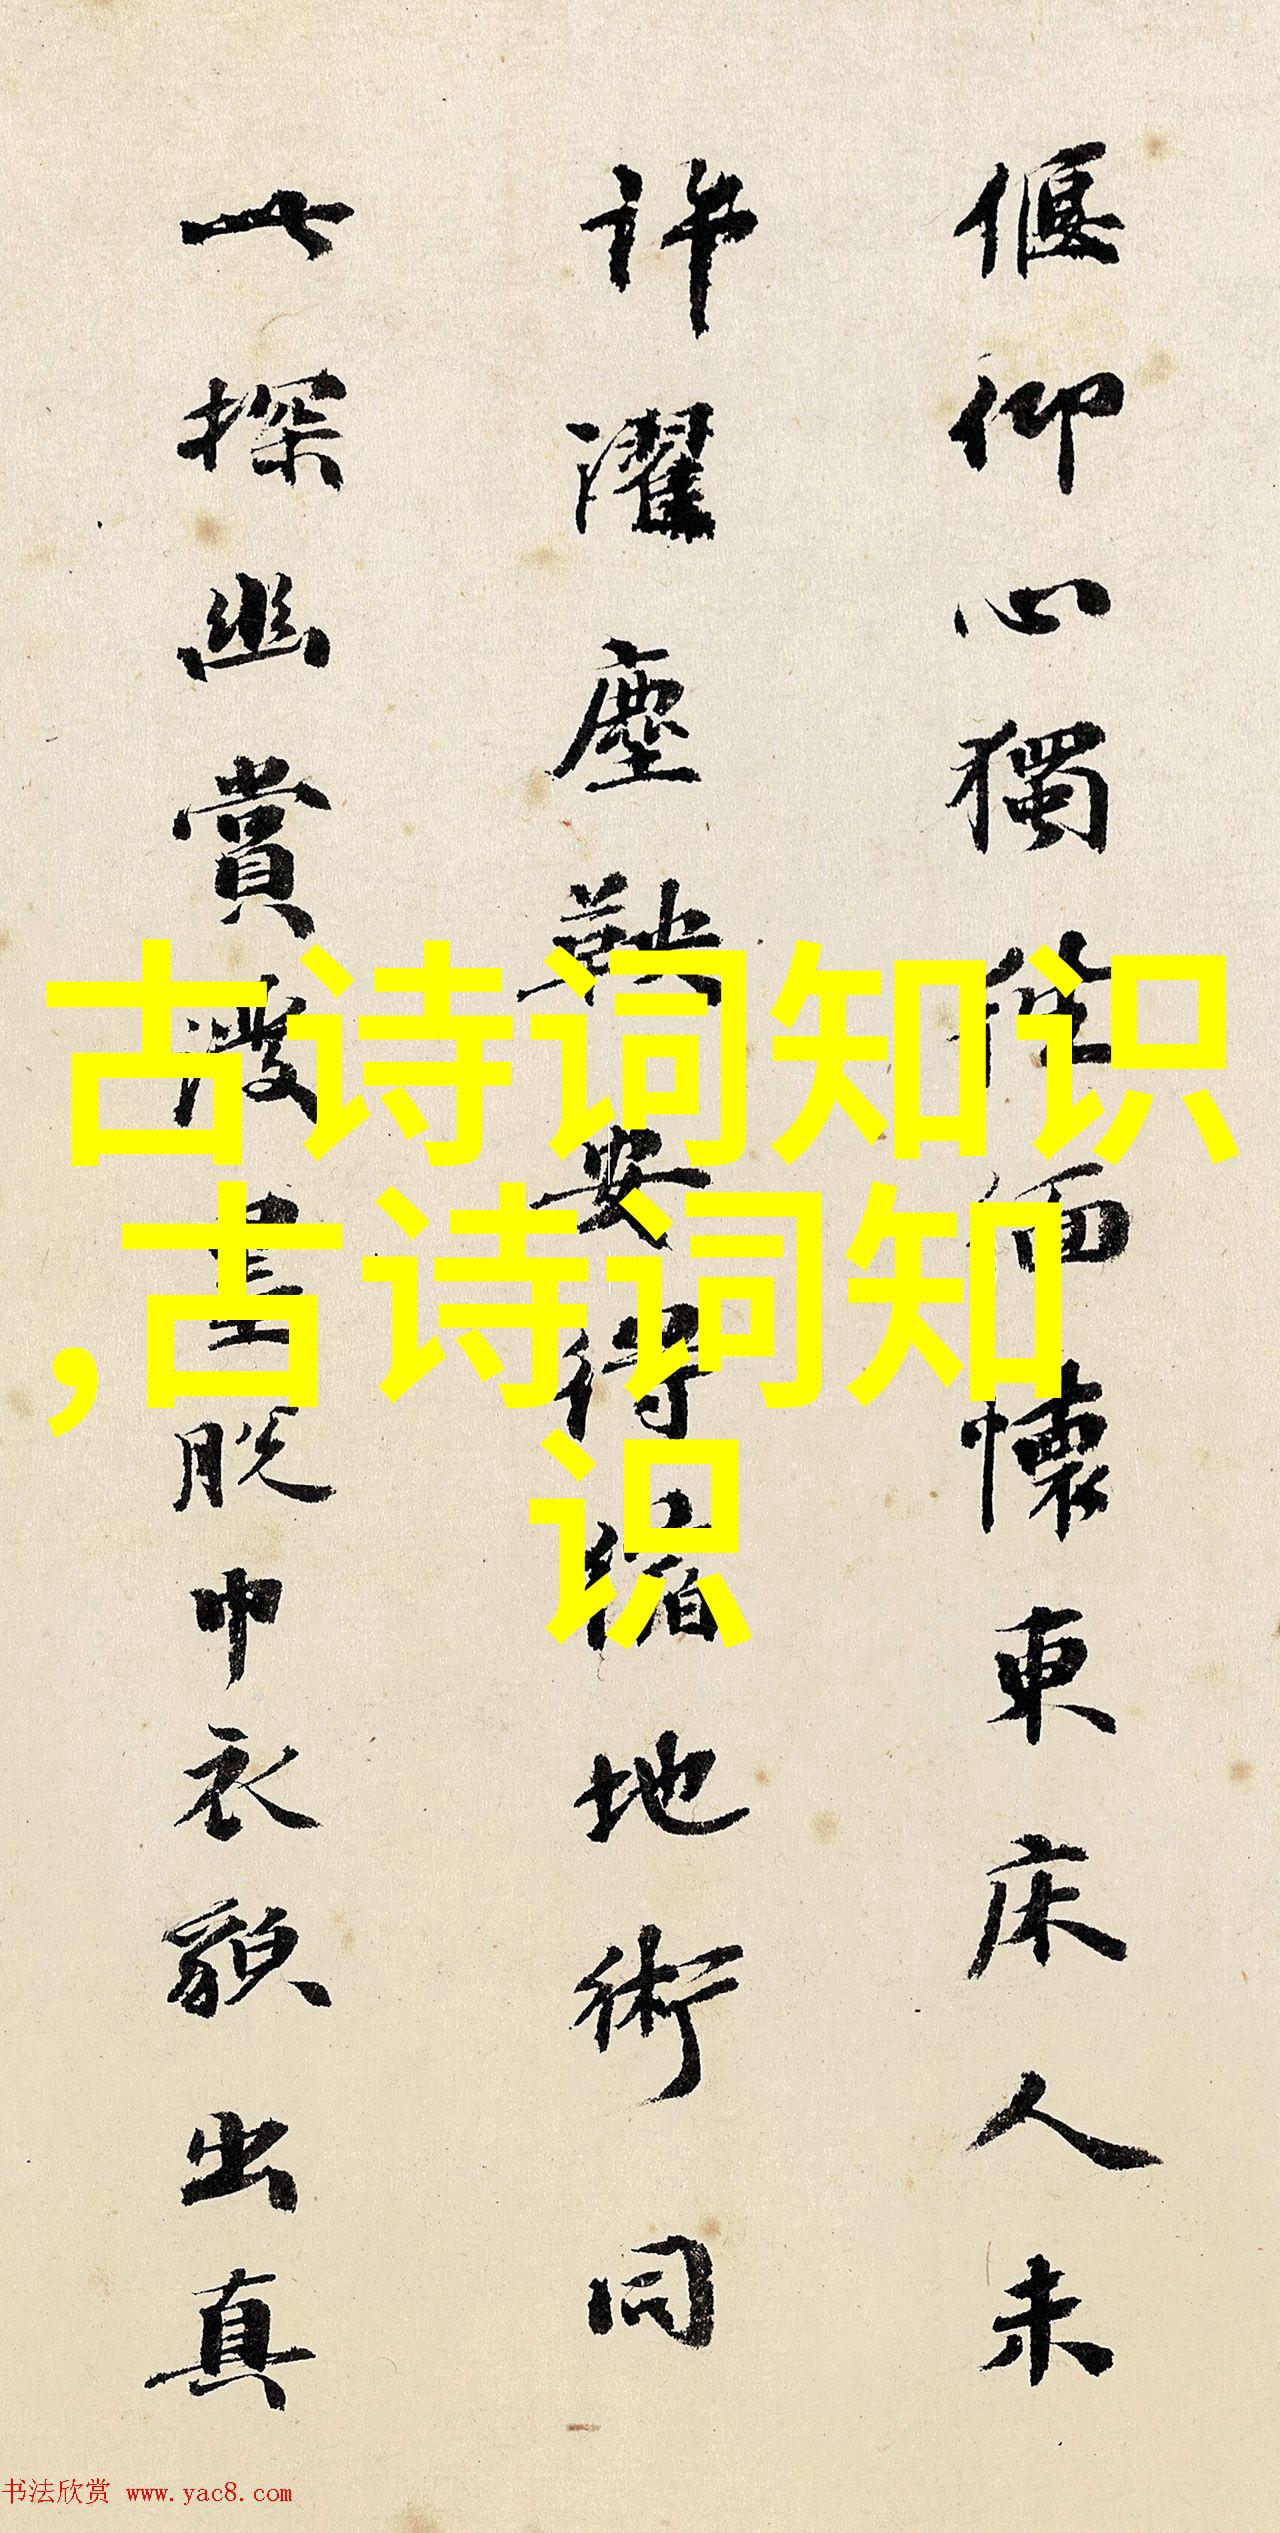 偃仰心獨往緬懷東床人未
許濯塵鞅安得縮地術同
此探幽賞漫書脫巾衣貌出真
古诗词知识
,古诗词知
识
书法欣赏 www.yac8.com